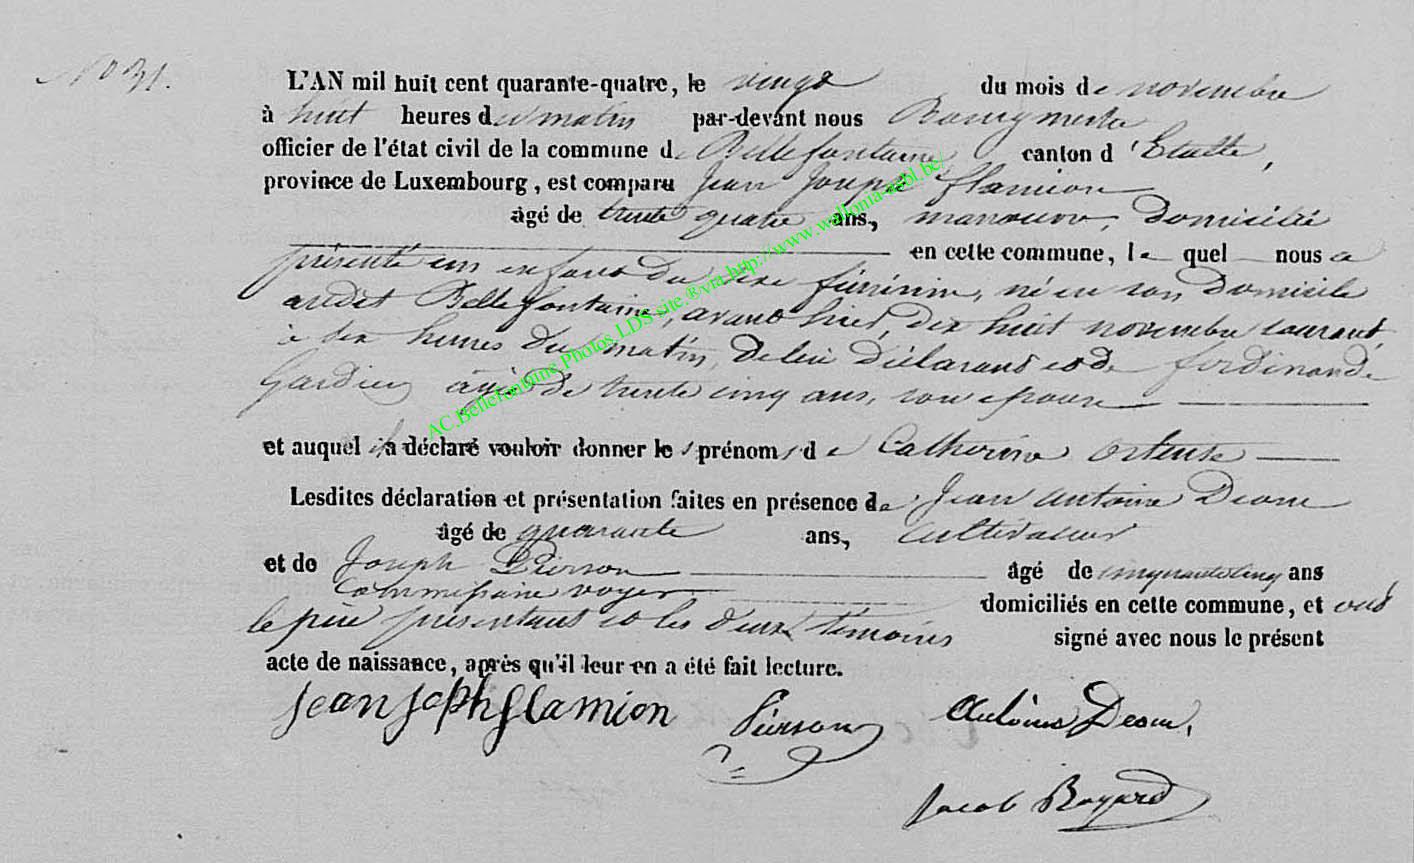 No 31.
L'AN mil huit cent quarante-quatre, le vingt du mois de novembre
à huit heures du matin par-devant nous Bourgmestre
officier de l'état civil de la commune de Bellefontaine canton d'Etalle,
province de Luxembourg, est comparu Jean Joseph flamion
âgé de trente quatre ans, manœuvre, domicilié
en cette commune, le quel nous a
présenté un enfant du sexe féminin, né en son domicile
audit Bellefontaine, avant hier, dix huit novembre courant,
à dix heures du matin, de lui déclarant et de ferdinande
Gardien âgée de trente cinq ans, son epouse
et auquel il a déclaré vouloir donner les prénoms de Catherine ortense
Lesdites déclaration et présentation faites en présence de Jean antoine Deom
âgé de quarante ans, cultivateur
et de Joseph Pierson âgé de cinquante cinq ans
Commissaire voyer domiciliés en cette commune, et ont
le père présentant et les deux témoins signé avec nous le présent
acte de naissance, après qu'il leur en a été fait lecture.
Jean Joseph flamion Pierson Antoine Deom.
Jacob Bayard
AC.Bellefontaine Photos LDS site ® via http://www.wallonia-asbl.be/